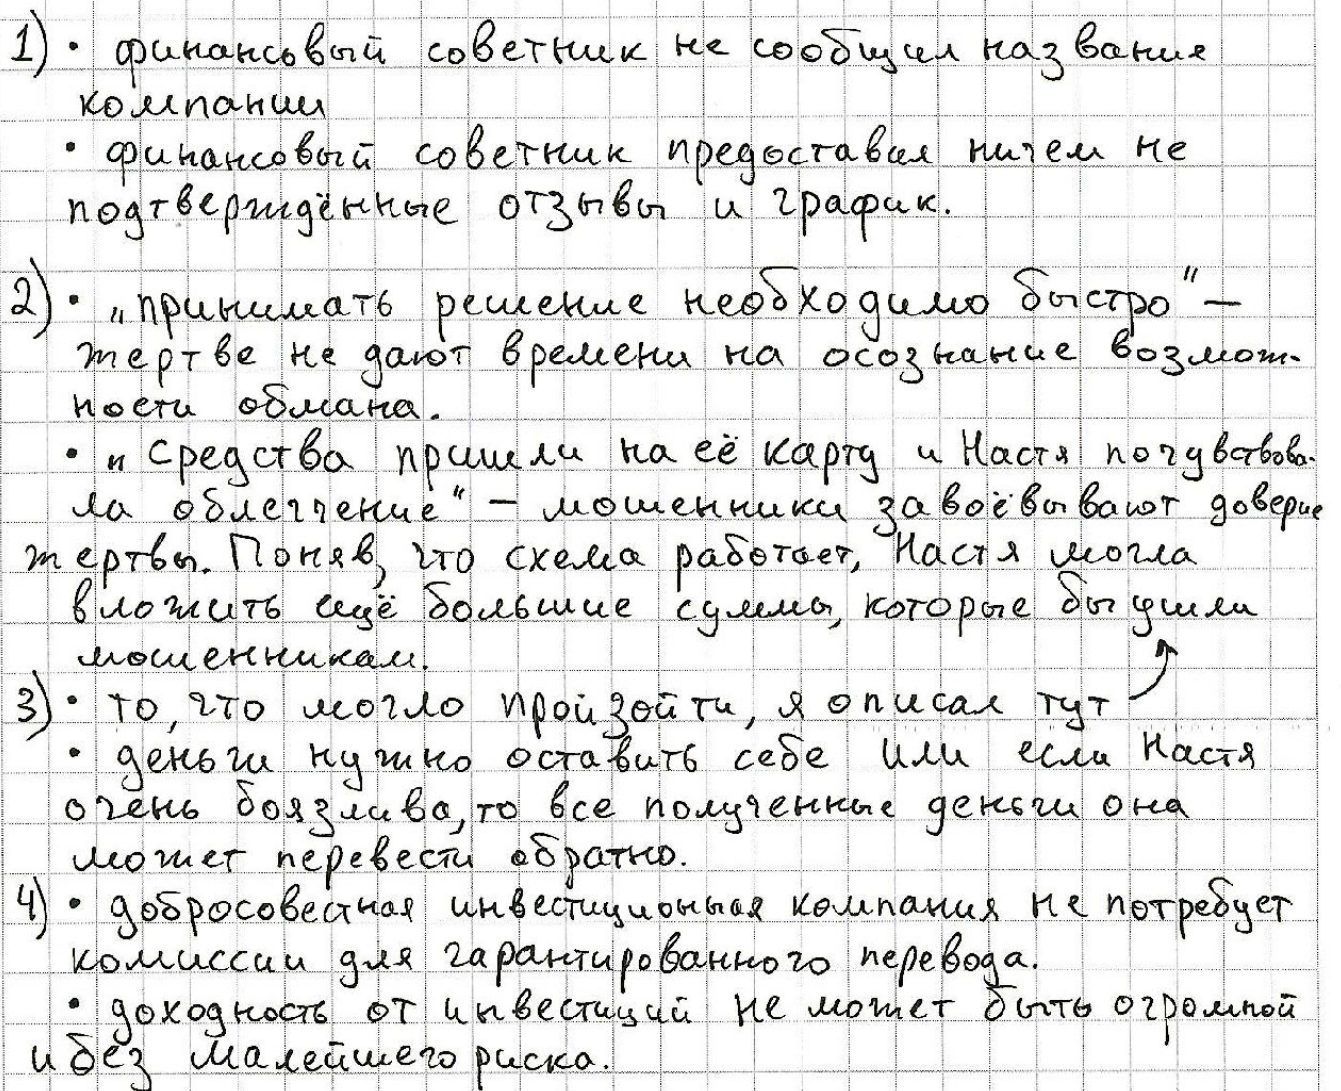 1) • финансовый советник не сообщил название
компании
• финансовый советник предоставил ничем не
подтверждённые отзывы и график.
2) • „принимать решение необходимо быстро" –
жертве не дают времени на осознание возмож-
ности обмана.
• „Средства пришли на её карту и Настя почувствова-
ла облегчение" – мошенники завоёвывают доверие
жертвы. Поняв, что схема работает, Настя могла
вложить ещё большие суммы, которые бы ушли
мошенникам.
3) • то, что могло произойти, я описал тут
• деньги нужно оставить себе или если Настя
очень боязлива, то все полученные деньги она
может перевести обратно.
4) • добросовестная инвестиционная компания не потребует
комиссии для гарантированного перевода.
• доходность от инвестиций не может быть огромной
и без малейшего риска.